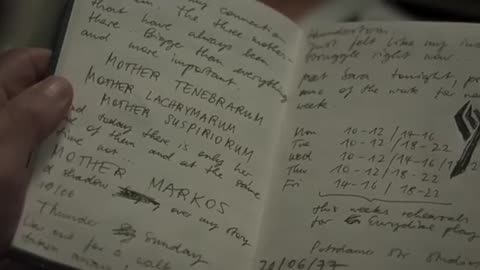 my connection
The three mother-
that have always been
there. Bigge than everything
and more important...
MOTHER TENEBRARUM
MOTHER LACHRYMARUM
MOTHER SUSPIRIORUM
and today there is only her
of them and at the same
time not...
MOTHER MARKOS
a shadow over my story
10/06
Thunder Sunday
like one for a walk
just felt like my
struggle right now...
met Sara tonight,
one of the
week
Mon 10-12 / 14-16
Tue 10-12 / 18-22
Wed 10-12 / 14-16 /
Thu 10-12 / 18-22
Fri 14-16 / 18-22
this weeks rehearsals
for Eurydice play
Potsdamer Str
21/06/77